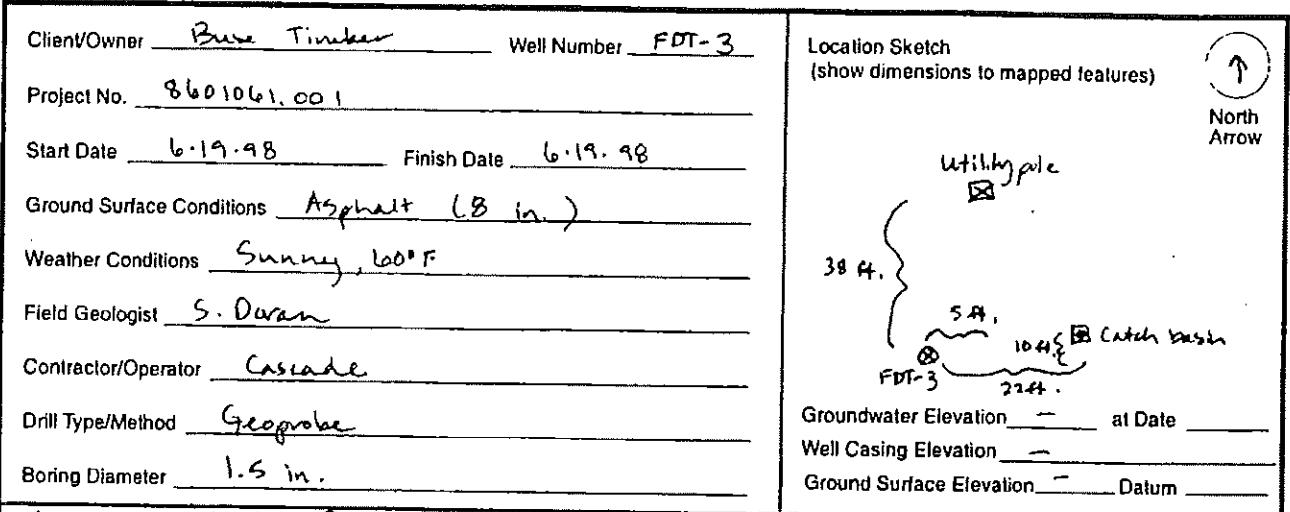 Client/Owner Buse Timber Well Number FDT-3
Project No. 8601061.001
Start Date 6.19.98 Finish Date 6.19.98
Ground Surface Conditions Asphalt (8 in.)
Weather Conditions Sunny, 60°F
Field Geologist S. Duran
Contractor/Operator Cascade
Drill Type/Method Geoprobe
Boring Diameter 1.5 in.
Location Sketch
(show dimensions to mapped features)
North
Arrow
Utility pole
38 ft.
5 ft.
10 ft. Catch basin
FDT-3
22 ft.
Groundwater Elevation — at Date
Well Casing Elevation —
Ground Surface Elevation — Datum